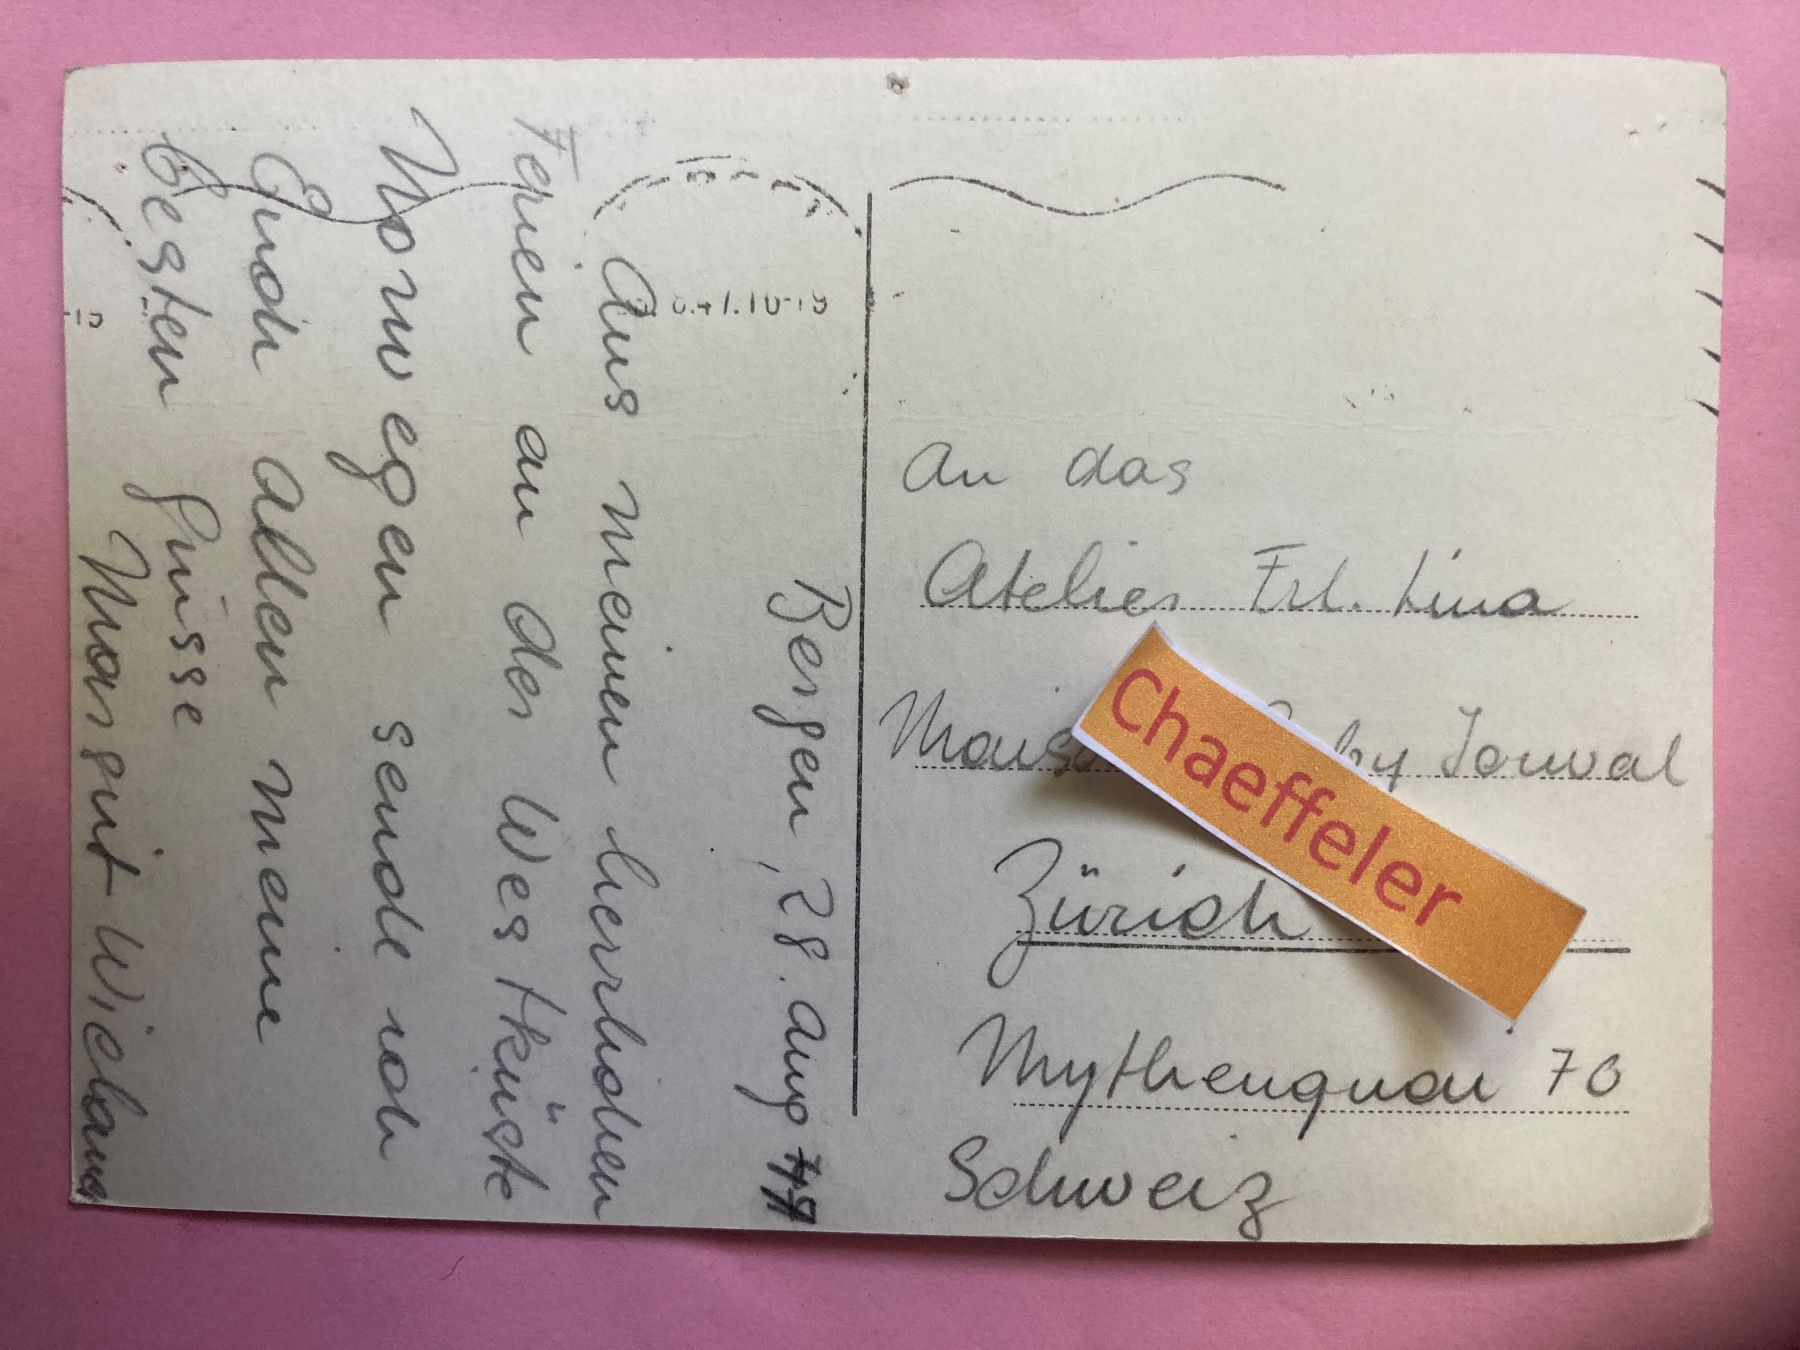 Bergen, 28. Aug 47
Aus meinen herrlichen
Ferien an der Westküste
Norwegen sende ich
Euch allen meine
besten Grüsse
Margrit Wieland
An das
Atelier Frl. Lina
Gaby Jouval
Zürich
Mythenquai 70
Schweiz
Chaeffeler